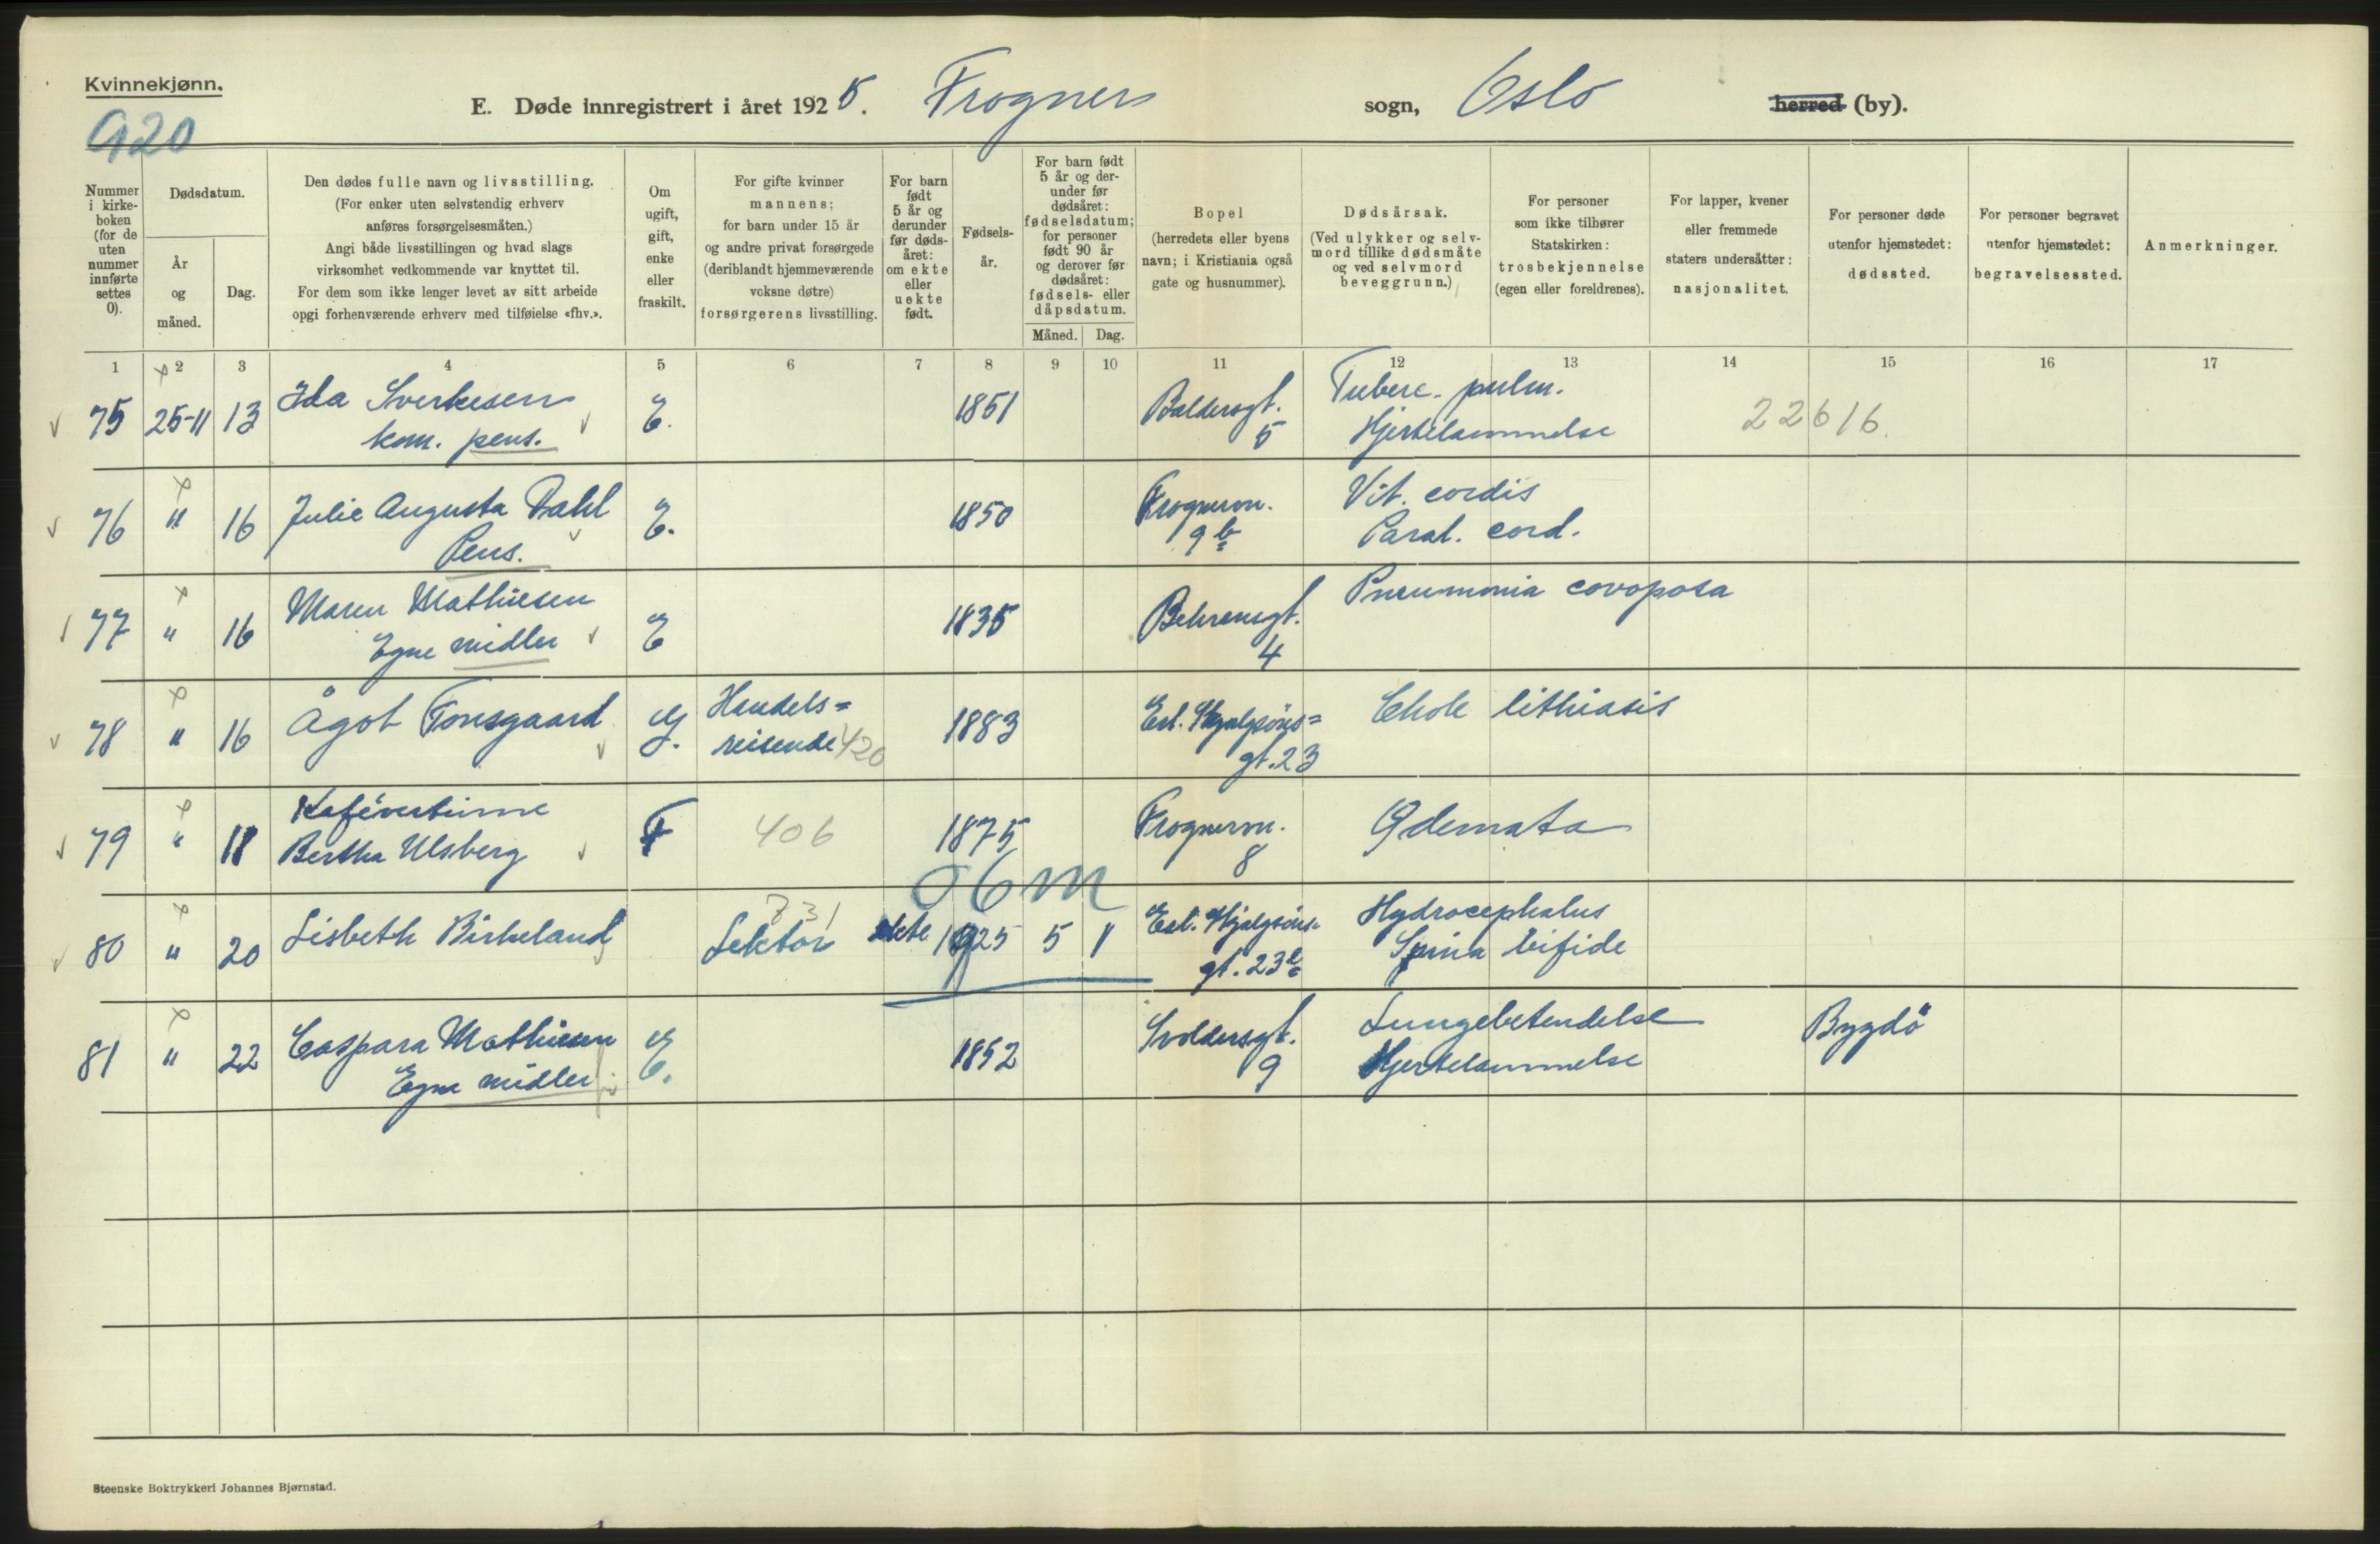 Kvinnekjønn.
920
E. Døde innregistrert i året 1925. Frogner sogn, Oslo herred (by).
Nummer i kirkeboken (for de uten nummer innførte settes 0).
Dødsdatum.
År og måned.
Dag.
Den dødes fulle navn og livsstilling.
(For enker uten selvstendig erhverv
anføres forsørgelsesmåten.)
Angi både livsstillingen og hvad slags
virksomhet vedkommende var knyttet til.
For dem som ikke lenger levet av sitt arbeide
opgi forhenværende erhverv med tilføielse «fhv.».
Om
ugift,
gift,
enke
eller
fraskilt.
For gifte kvinner
mannens;
for barn under 15 år
og andre privat forsørgede
(deriblandt hjemmeværende
voksne døtre)
forsørgerens livsstilling.
For barn
født
5 år og
derunder
før døds-
året:
om ekte
eller
uekte
født.
Fødsels-
år.
For barn født
5 år og der-
under før
dødsåret:
fødselsdatum;
for personer
født 90 år
og derover før
dødsåret:
fødsels- eller
dåpsdatum.
Måned. Dag.
Bopel
(herredets eller byens
navn; i Kristiania også
gate og husnummer).
Dødsårsak.
(Ved ulykker og selv-
mord tillike dødsmåte
og ved selvmord
beveggrunn.)
For personer
som ikke tilhører
Statskirken:
trosbekjennelse
(egen eller foreldrenes).
For lapper, kvener
eller fremmede
staters undersåtter:
nasjonalitet.
For personer døde
utenfor hjemstedet:
dødssted.
For personer begravet
utenfor hjemstedet:
begravelsessted.
Anmerkninger.
1 2 3 4 5 6 7 8 9 10 11 12 13 14 15 16 17
75 25-11 13 Ida Sverkesen E. 1851 Baldersgt. Tuberc. pulm.
kom. pens. 5 Hjertelammelse 22616.
76 " 16 Julie Augusta Dahl E. 1850 Frognerv. Vit. cordis
Pens. 9b Paral. cord.
77 " 16 Maren Mathiesen E 1835 Behrensgt. Pneumonia covoposa
Egne midler 4
78 " 16 Ågot Tonsgaard G. Handels= 1883 Erl. Skjalgsöns= Chole lithiasis
reisende 420 gt. 23
79 " 18 Kafévertinne F 406 1875 Frognerv. Ødemata
Bertha Ulsberg 8
06m
731
80 " 20 Lisbeth Birkeland Lektor ekte 1925 5 1 Erl. Skjalgsöns Hydrocephalus
gt. 23 Spina bifide
81 " 22 Caspara Mathiesen E. 1852 Svoldersgt. Lungebetendelse Bygdö
Egne midler 9 Hjertelammelse
Steenske Boktrykkeri Johannes Bjørnstad.